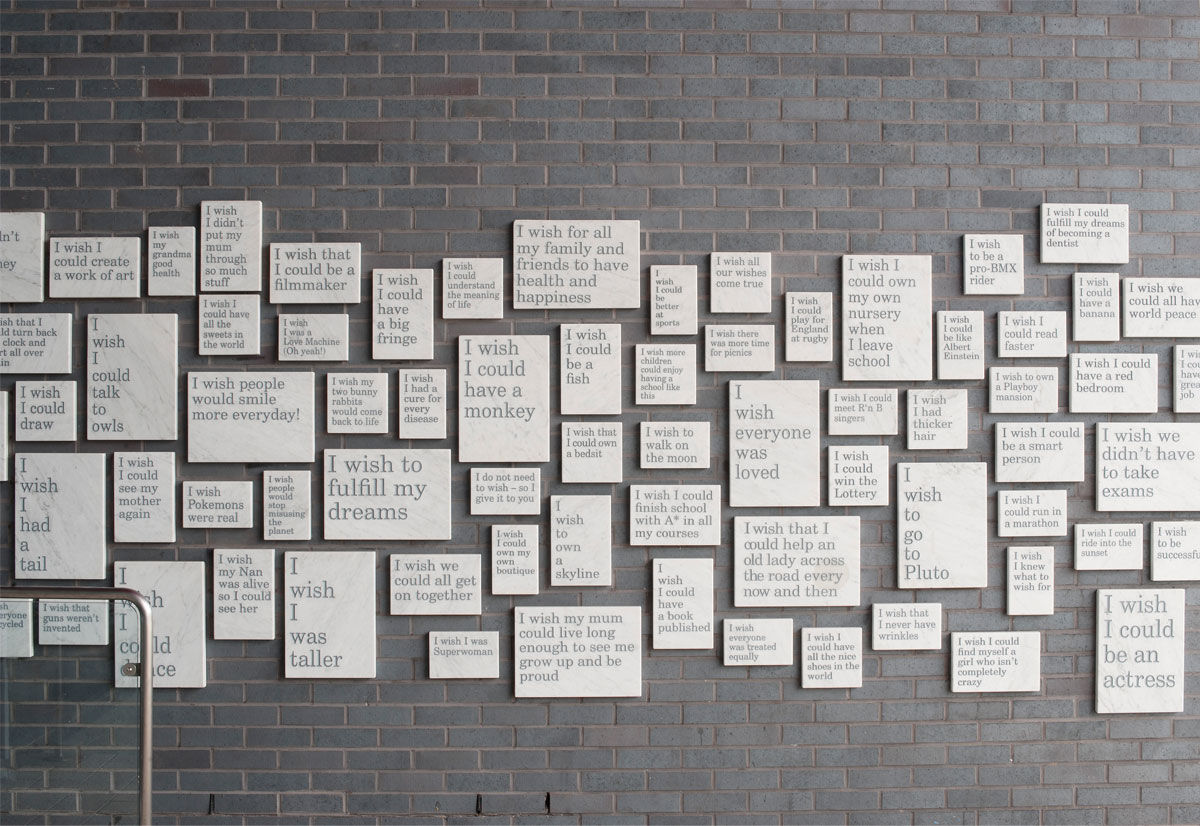 I wish I
could create
a work of art
I wish
my
grandma
good
health
I wish
I didn't
put my
mum
through
so much
stuff
I wish that
I could be a
filmmaker
I wish
I could
have
a big
fringe
I wish
I could
understand
the meaning
of life
I wish for all
my family and
friends to have
health and
happiness
I
wish
I could
be
better
at
sports
I wish
all
our wishes
come true
I wish
I could
play for
England
at rugby
I wish I
could own
my own
nursery
when
I leave
school
I wish
to be a
pro-BMX
rider
I wish I could
fulfill my dreams
of becoming a
dentist
I wish
I could
have a
banana
I wish we
could all have
world peace
wish that I
turn back
clock and
all over
I
wish
I
could
talk
to
owls
I wish
I could have
all the
sweets in
the world
I wish
I was a
Love Machine
(Oh yeah!)
I wish
I could
have a
monkey
I wish
I could
be a
fish
I wish more
children
could enjoy
having a
school like
this
I wish there
was more time
for picnics
I wish
I could
be like
Albert
Einstein
I wish
I could read
faster
I wish
I could
draw
I wish people
would smile
more everyday!
I wish my
two bunny
rabbits
would come
back to life
I wish
I had a
cure for
every
disease
I wish that
I could own
a bedsit
I wish to
walk on
the moon
I
wish
everyone
was
loved
I wish I could
meet R'n B
singers
I wish
I had
thicker
hair
I wish to own
a Playboy
mansion
I wish I could
have a red
bedroom
job
I
wish
I
had
a
tail
I wish
I could
see my
mother
again
I wish
Pokemons
were real
I wish
people
would
stop
misusing
the
planet
I wish to
fulfill my
dreams
I do not need
to wish – so I
give it to you
I wish
I could
own my
own
boutique
I
wish
to
own
a
skyline
I wish I could
finish school
with A* in all
my courses
I wish
I could
win the
Lottery
I
wish
to
go
to
Pluto
I wish I could
be a smart
person
I wish we
didn't have
to take
exams
I wish
I could run in
a marathon
I wish I could
ride into the
sunset
I wish
to be
successful
I wish that
guns weren't
invented
I
wish
I
I wish
my Nan
was alive
so I could
see her
I
wish
I
was
taller
I wish we
could all get
on together
I wish I was
Superwoman
I wish my mum
could live long
enough to see me
grow up and be
proud
I
wish
I could
have
a book
published
I wish that I
could help an
old lady across
the road every
now and then
I wish
everyone
was treated
equally
I wish
I could have
all the nice
shoes in the
world
I wish that
I never have
wrinkles
I wish I could
find myself a
girl who isn't
completely
crazy
I wish
I knew
what to
wish for
I wish
I could
be an
actress